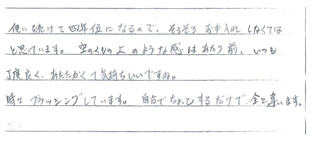 使い続けて四年位になるので、そろそろお手入れしなくては
と思っています。空のくもの上のような感はあたり前、いつも
丁度良く、あたたかくて気持ちいいですね。
時々ブラッシングしています。自分でちょっとするだけで、全然違います。